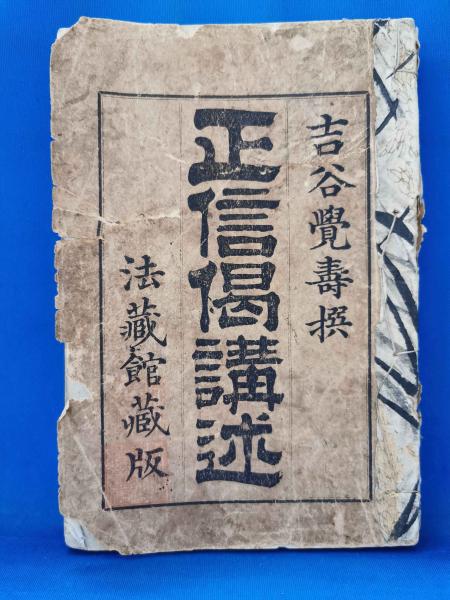 吉谷覺壽撰
正信偈講述
法藏館藏版